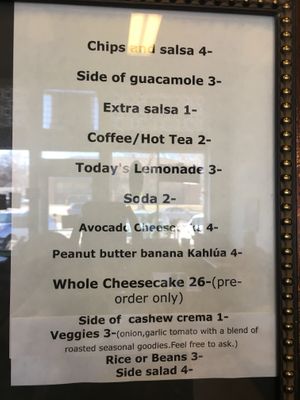 Chips and salsa 4-
Side of guacamole 3-
Extra salsa 1-
Coffee/Hot Tea 2-
Today's Lemonade 3-
Soda 2-
Avocado 4-
Peanut butter banana Kahlúa 4-
Whole Cheesecake 26-(pre-
order only)
Side of cashew crema 1-
Veggies 3-(onion,garlic tomato with a blend of
roasted seasonal goodies.Feel free to ask.)
Rice or Beans 3-
Side salad 4-